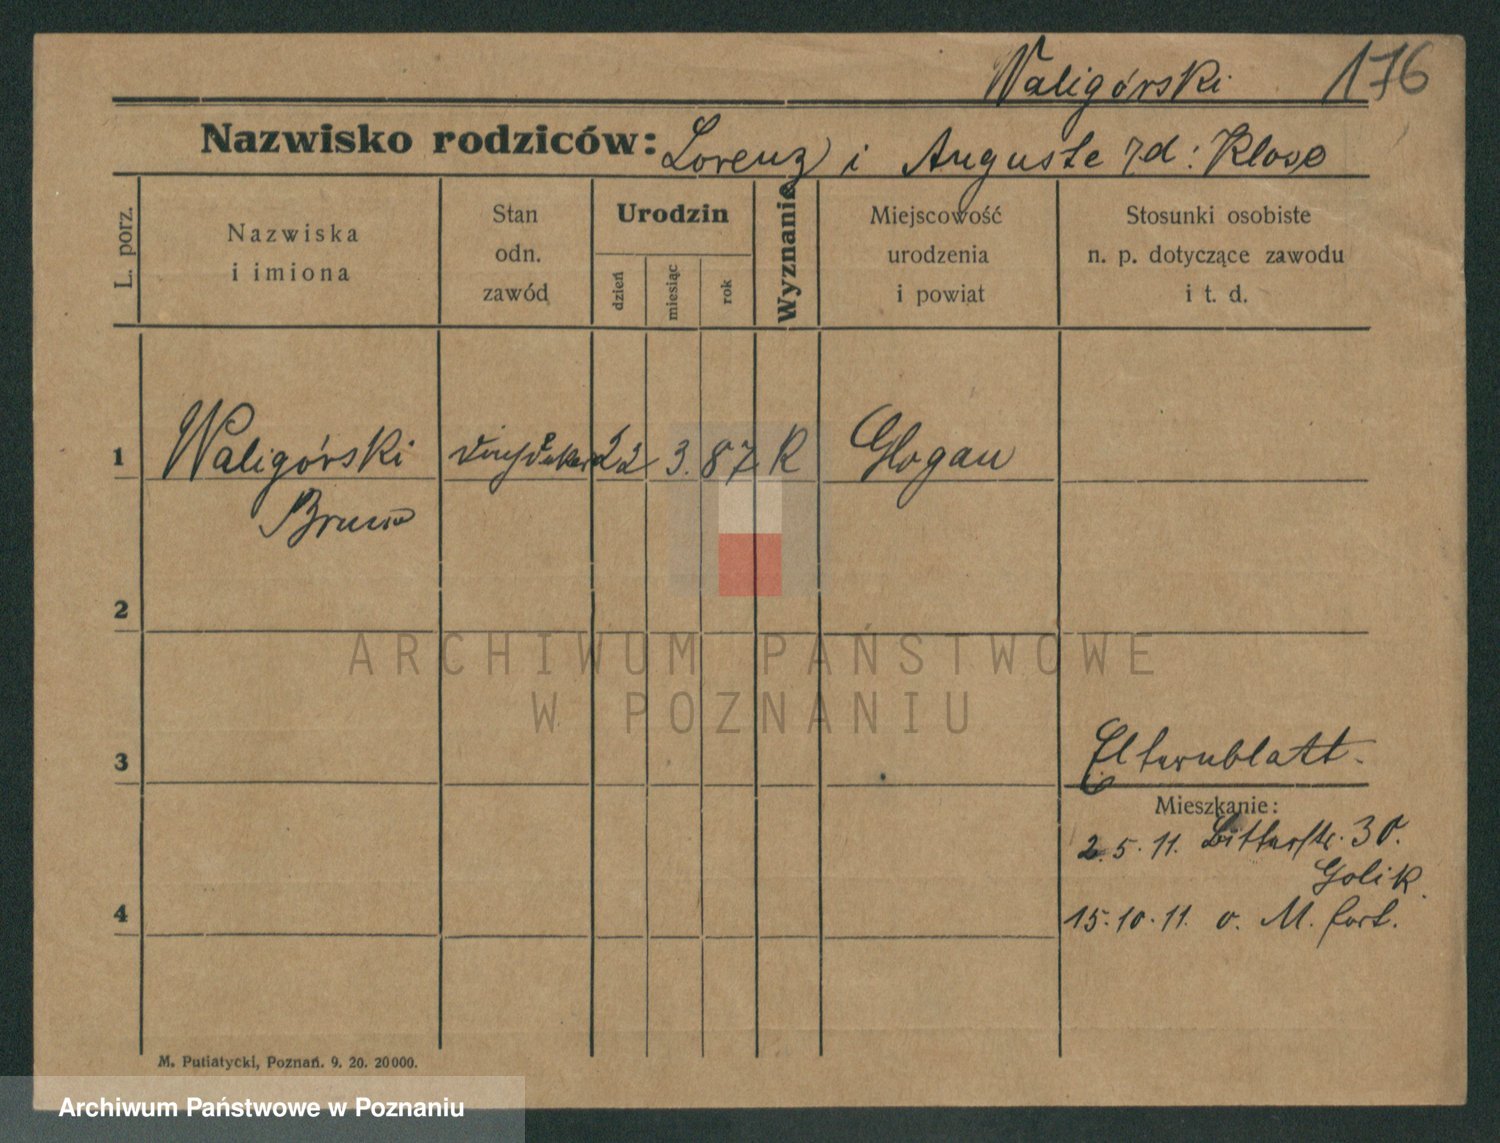 Waligórski 176
Nazwisko rodziców: Lorenz i Auguste zd: Klose
L. porz.
Nazwiska
i imiona
Stan
odn.
zawód
Urodzin
dzień
miesiąc
rok
Wyznanie
Miejscowość
urodzenia
i powiat
Stosunki osobiste
n. p. dotyczące zawodu
i t. d.
1 Waligórski 22 3. 87 K Glogau
Bruno
2
ARCHIWUM PAŃSTWOWE
W POZNANIU
3 Elternblatt.
Mieszkanie:
2.5.11. Bitterstr. 30.
Golik.
4 15.10.11. o. M. fort.
M. Putiatycki, Poznań. 9. 20. 20000.
Archiwum Państwowe w Poznaniu